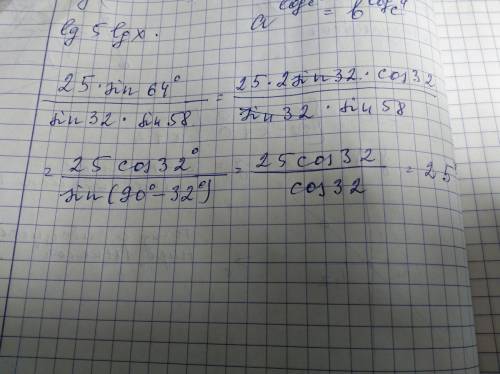 lg 5 lg x .
= b
25 · sin 64° / sin 32 · sin 58 = 25 · 2 sin 32 · cos 32 / sin 32 · sin 58
= 25 cos 32° / sin (90° - 32°) = 25 cos 32 / cos 32 = 25